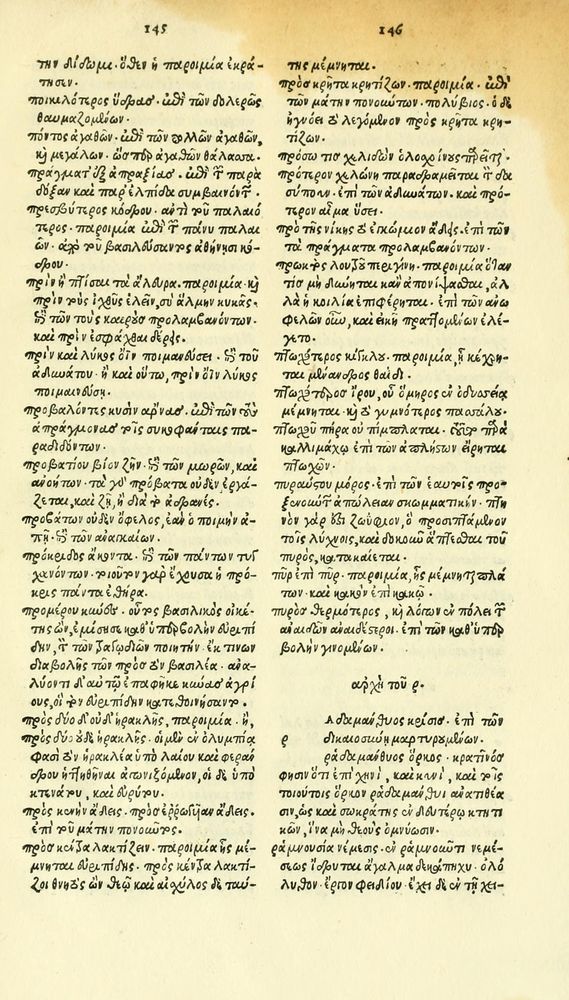 145
τὴν δίδωμι. ὅθεν ἡ παροιμία ἐκρά-
τησεν.
ποικιλότερος ὕδρας. ἐπὶ τῶν δολερῶς
θαυμαζομένων.
πόντος ἀγαθῶν. ἐπὶ τῶν πολλῶν ἀγαθῶν,
καὶ μεγάλων. ὥσπερ ἀγαθῶν θάλασσα.
πράγματ' ἐξ ἀπραξίας. ἐπὶ τ παρὰ
δόξαν καὶ παρ' ἐλπίδα συμβαινόντ.
πρεσβύτερος κόδρου. ἀντὶ τοῦ παλαιό
τερος. παροιμία ἐπὶ τ πάνυ παλαι
ῶν. ἀπὸ τοῦ βασιλεύσαντος ἀθήνησι κό-
δρου.
πρὶν ἢ πτίσαι τὰ ἄλευρα. παροιμία. καὶ
πρὶν τοὺς ἰχθῦς ἑλεῖν, σὺ ἅλμην κυκᾷς.
ἐπὶ τῶν τοὺς καιροὺς προλαμβανόντων.
καὶ πρὶν ἐσφάχθαι δέρεις.
πρὶν καὶ λύκος ὄϊν ποιμανεύσει. ἐπὶ τοῦ
ἀδυνάτου. ἢ καὶ οὕτω, πρὶν ὄϊν λύκος
ποιμανεύσῃ.
προβαλόντες κυσὶν ἄρνας. ἐπὶ τῶν τοὺς
ἀπράγμονας τοῖς συκοφάνταις πα-
ραδιδόντων.
προβατίου βίον ζῆν. ἐπὶ τῶν μωρῶν, καὶ
ἀνοήτων. τὰ γὸ πρόβατα οὐδὲν ἐργά-
ζεται, καὶ ζῇ, ἢ διὰ τ ἀσθενές.
προβάτων οὐδὲν ὄφελος, ἐὰν ὁ ποιμὴν ἀ-
πῇ. ἐπὶ τῶν ἀναγκαίων.
πρόκριδος ἄκοντα. ἐπὶ τῶν πάντων τυγ
χανόντων. τοιοῦτον γὰρ ἔχουσα ἡ πρό-
κρις πάντα ἐθήρα.
προμέρου κύνες. οὗτος βασιλικὸς οἰκέ-
της ὢν, ἐμίσησε καθ' ὑπερβολὴν εὐριπί
δην, τ τῶν τραγῳδιῶν ποιητὴν. ἔκ τινων
διαβολῆς τῶν πρὸς τὸν βασιλέα. ἀνα-
λύοντι δ' αὐτῷ ἐπαφῆκε κύνας ἀγρί
ους, οἳ τὸν εὐριπίδην κατεθοινήσαντο.
πρὸς δύο δ' οὐδ' ἡρακλῆς. παροιμία. ἢ,
πρὸς δύο οὐδὲ ἡρακλῆς. οἱ μὲν ἐν ὀλυμπίᾳ
φασὶ τὸν ἡρακλέα ὑπὸ λαίου καὶ φεράν
δρου ἡττηθῆναι ἀγωνιζόμενον, οἱ δὲ ὑπὸ
κτενάτου, καὶ εὐρύτου.
πρὸς κενὴν ᾄδεις. πρὸς ἐρρωγυῖαν ᾄδεις.
ἐπὶ τοῦ μάτην πονοῦντος.
πρὸς κέντρα λακτίζειν. παροιμία ἧς μέ-
μνηται εὐριπίδης. πρὸς κέντρα λακτί-
ζοι θνητὸς ὢν θεῷ. καὶ αἰσχύλος δὲ ταύ-
146
της μέμνηται.
πρὸς κρῆτα κρητίζων. παροιμία. ἐπὶ
τῶν μάτην πονούντων. πολύβιος. ὁ δὲ
ἠγνόει τὸ λεγόμενον πρὸς κρῆτα κρη-
τίζων.
πρότερον χελώνη παραδραμεῖται τ δα
σύποδα. ἐπὶ τῶν ἀδυνάτων. καὶ πρό-
τερον αἷμα ὕσει.
πρὸ τῆς νίκης τὸ ἐγκώμιον ᾄδεις. ἐπὶ τῶν
τὰ πράγματα προλαμβανόντων.
παροιμία ὅταν
τις μὴ δύνηται κἂν ἀπονίψασθαι, ἀλ
λὰ ἡ κοιλία ἐπιφέρηται. ἐπὶ τῶν ἀνω
φελῶν οὖν, καὶ εἰκῆ πραττομένων ἐλέ-
γετο.
πτωχότερος κίγκλου. παροιμία, ᾗ κέχρη-
ται μένανδρος θαΐδι.
πτωχότερος ἴρου, οὗ ὅμηρος ἐν ὀδυσσείᾳ
μέμνηται. καὶ τὸ γυμνότερος παττάλου.
πτωχοῦ πήρα οὐ πίμπλαται. τοῦτο παρὰ
καλλιμάχῳ ἐπὶ τῶν ἀπλήστων εἴρηται
πτωχῶν.
πυραύστου μόρος. ἐπὶ τῶν ἑαυτοῖς προ-
ξενούντ ἀπώλειαν σκωμματικήν. πτη
νὸν γάρ ἐστι ζωύφιον, ὃ προσιπτάμενον
τοῖς λύχνοις, καὶ δοκοῦν ἅπτεσθαι τοῦ
πυρὸς, κατακαίεται.
πῦρ ἐπὶ πῦρ. παροιμία, ἧς μέμνηται πλά
των. καὶ κακὸν ἐπὶ κακῷ.
πυρὸς θερμότερος, καὶ λόγων ἐν πόλει τ
ἀναιδῶν ἀναιδέστεροι. ἐπὶ τῶν καθ' ὑπερ
βολὴν γινομένων.
ἀρχὴ τοῦ ρ.
Ρ
Αδαμάνθυος κρίσις. ἐπὶ τῶν
δικαιοσύνῃ μαρτυρουμένων.
ῥαδαμάνθυος ὅρκος. κρατῖνός
φησιν ὅτι ἐπὶ χηνὶ, καὶ κυνὶ, καὶ τοῖς
τοιούτοις ὅρκον ῥαδαμάνθυι ἀνατιθέα
σιν, ὡς καὶ σωκράτης ἐν δευτέρῳ κτητι
κῶν, ἵνα μὴ θεοὺς ὀμνύωσιν.
ῥαμνουσία νέμεσις. ἐν ῥαμνοῦντι νεμέ-
σεως ἵδρυται ἄγαλμα δεκάπηχυ. ὁλό
λιθον. ἔργον φειδίου. ἔχει δὲ ἐν τῇ χει-